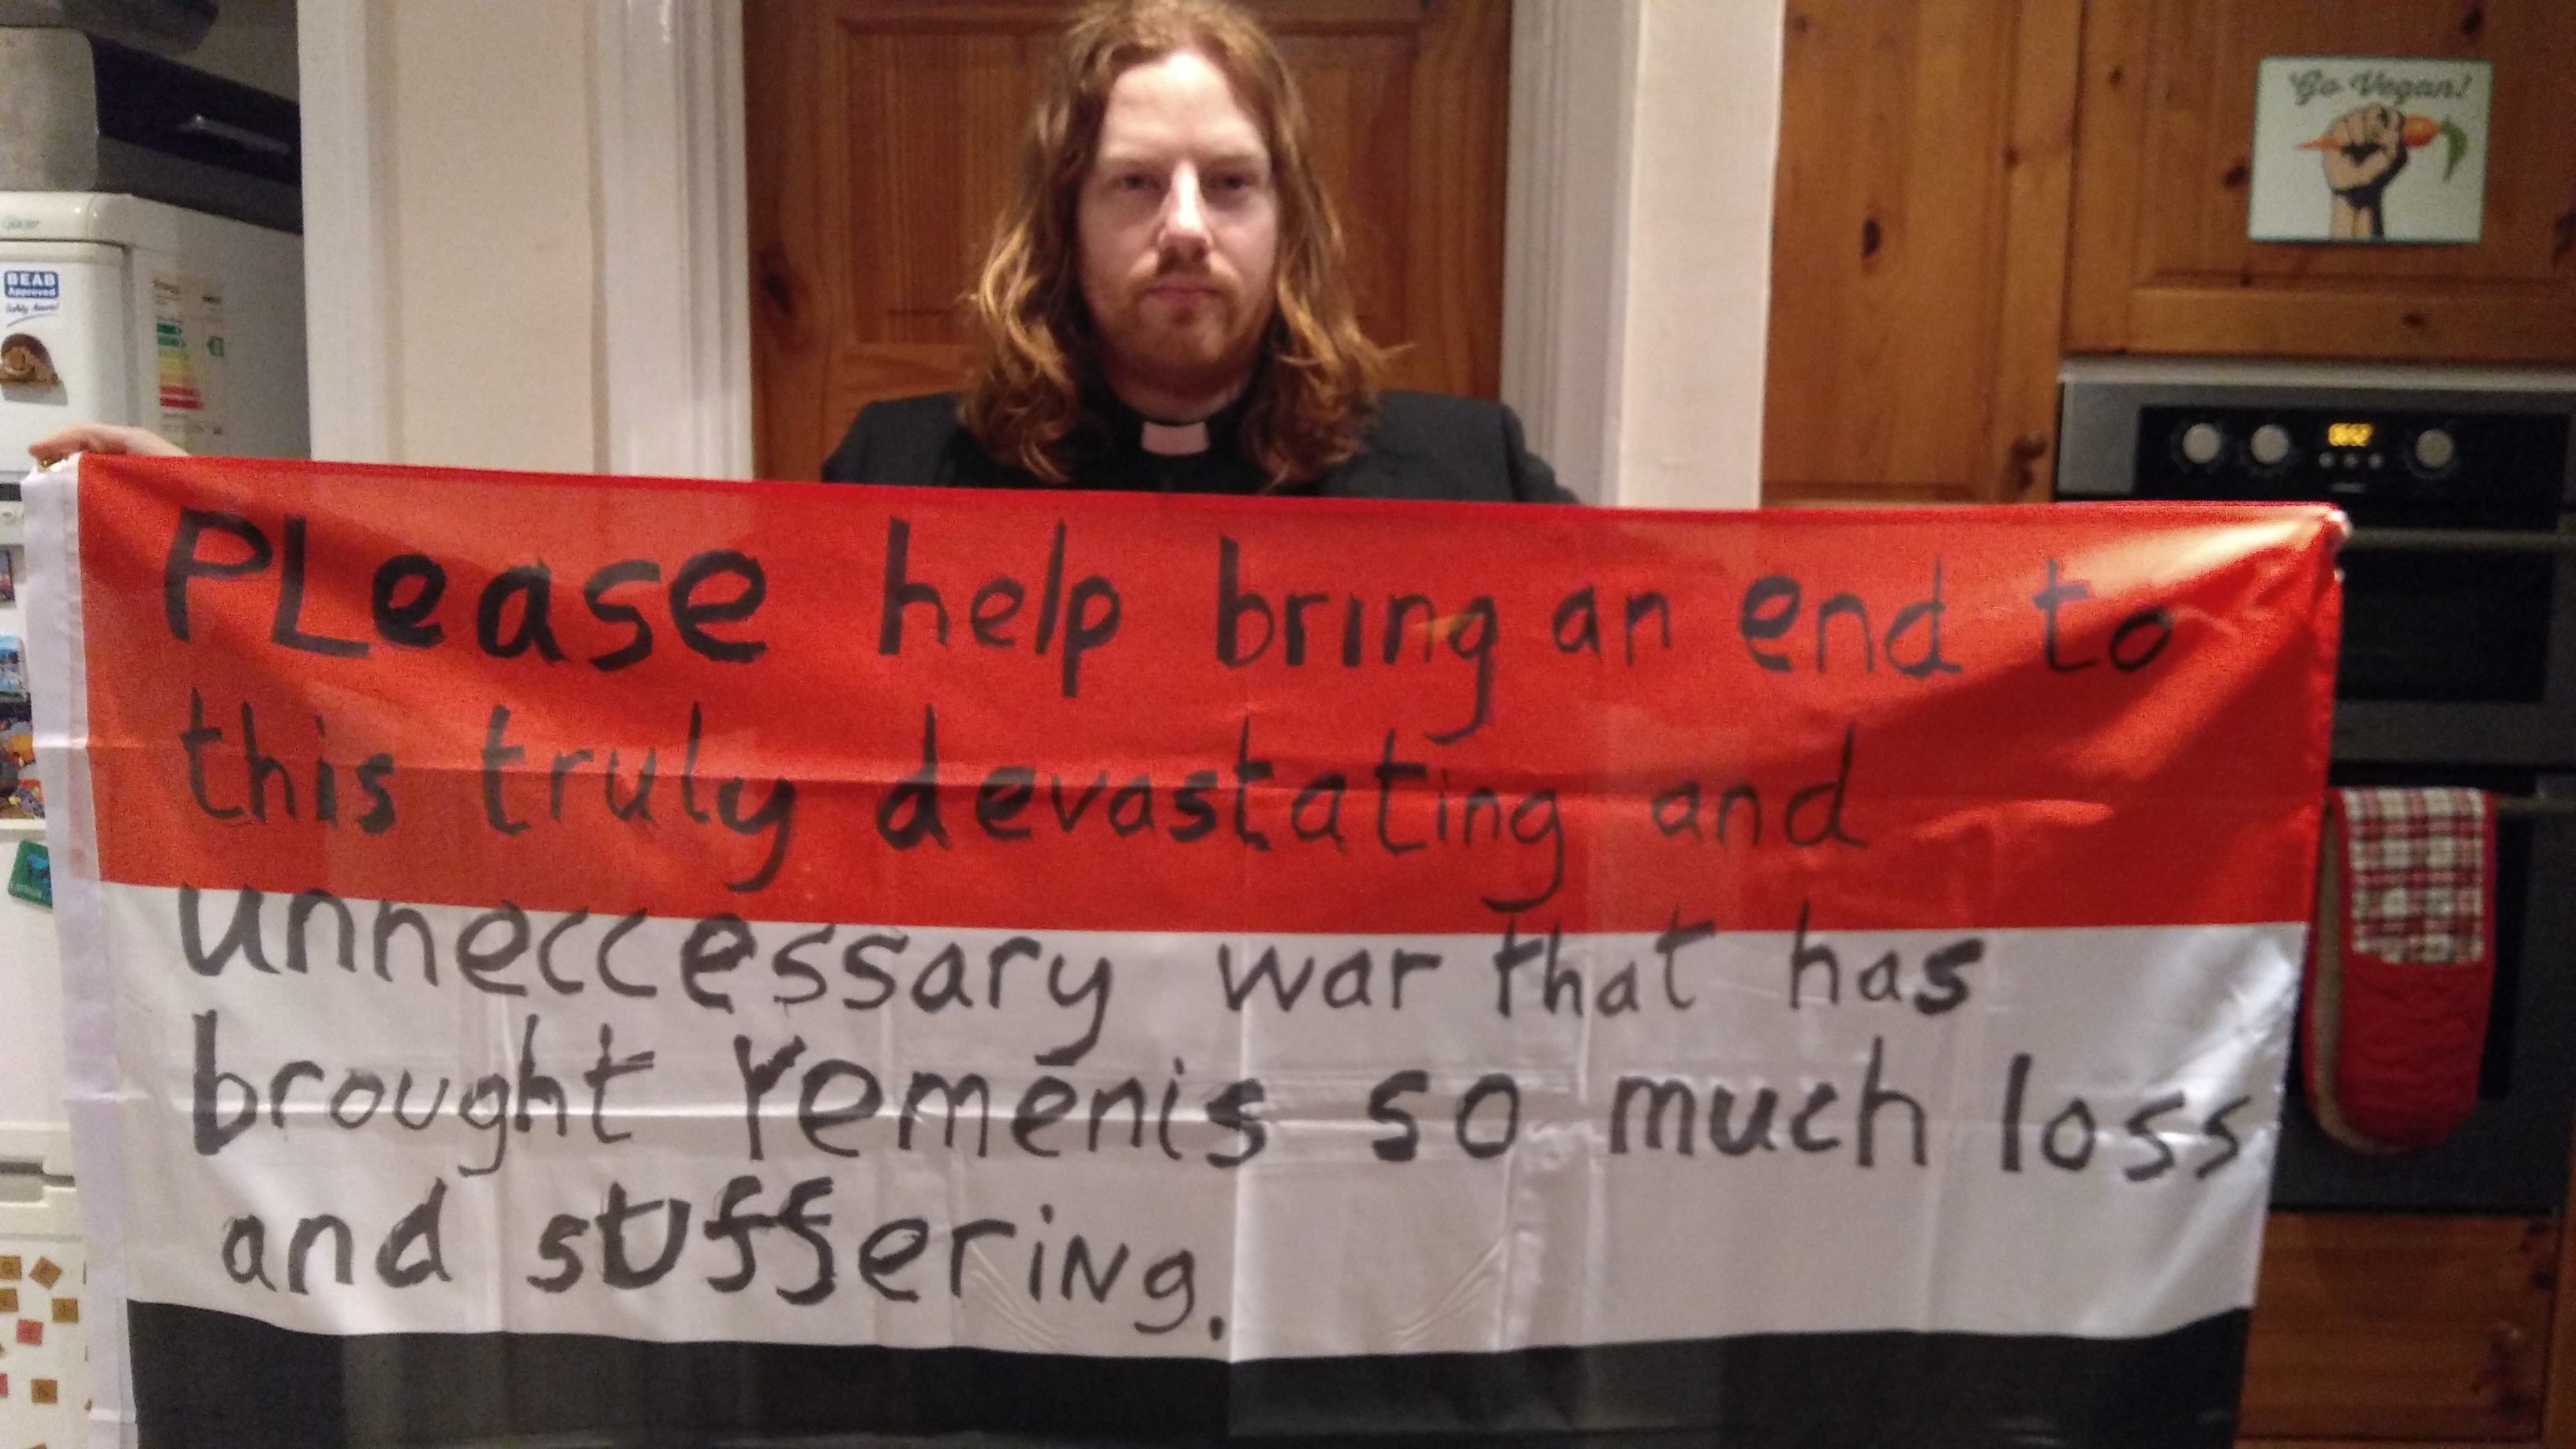 Go Vegan!
Glacier
BEAB
Approved
PLease help bring an end to
this truly devastating and
unneccessary war that has
brought Yemenis so much loss
and suffering.